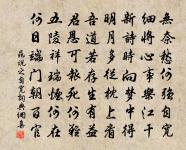 無奈愁何強自寬
細將心事樂江干
新詩時向夢中得
明月多從枕上看
吾道若存生有益
君恩可報死何難
五陵祥何在
何日端門朝百官
晁說之自寬詞典網